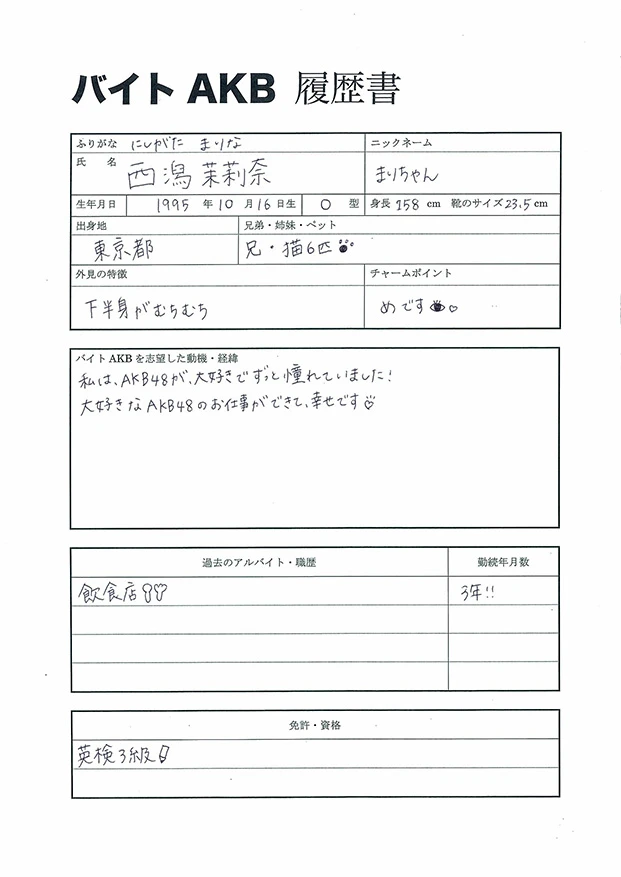 バイト AKB 履歴書
ふりがな にしがた まりな
ニックネーム
氏 名 西潟 茉莉奈
まりちゃん
生年月日 1995 年 10 月 16 日生 O 型 身長 158 cm 靴のサイズ 23.5 cm
出身地
兄弟・姉妹・ペット
東京都
兄・猫6匹
外見の特徴
チャームポイント
下半身がむちむち
めです
バイト AKB を志望した動機・経緯
私は、AKB48が、大好きでずっと憧れていました!
大好きなAKB48のお仕事ができて、幸せです♡
過去のアルバイト・職歴
勤続年月数
飲食店
3年!!
免許・資格
英検3級